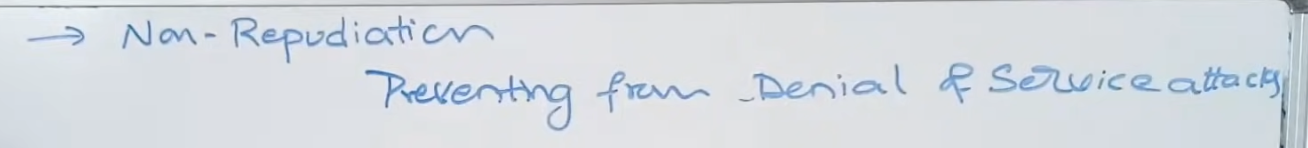 → Non-Repudiation
Preventing from Denial of Service attacks